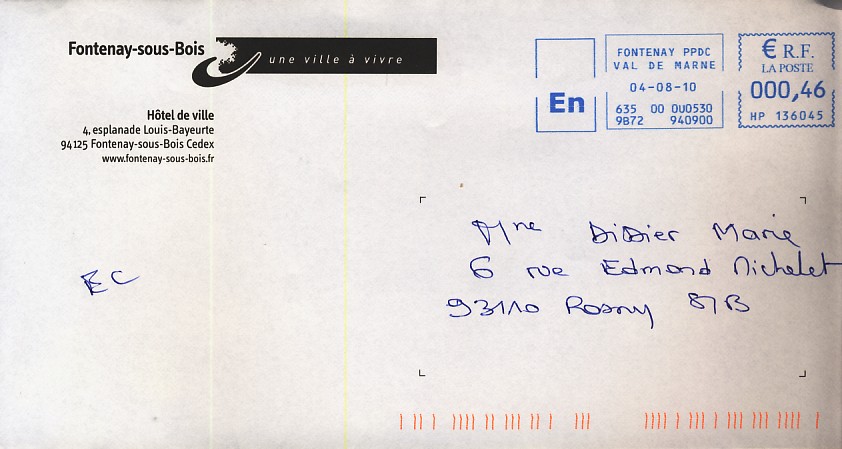 Fontenay-sous-Bois
une ville à vivre
Hôtel de ville
4, esplanade Louis-Bayeurte
94125 Fontenay-sous-Bois Cedex
www.fontenay-sous-bois.fr
En
FONTENAY PPDC
VAL DE MARNE
04-08-10
635 00 0U0530
9B72 940900
€ R.F.
LA POSTE
000,46
HP 136045
EC
Mme Didier Marie
6 rue Edmond Michelet
93110 Rosny S/B